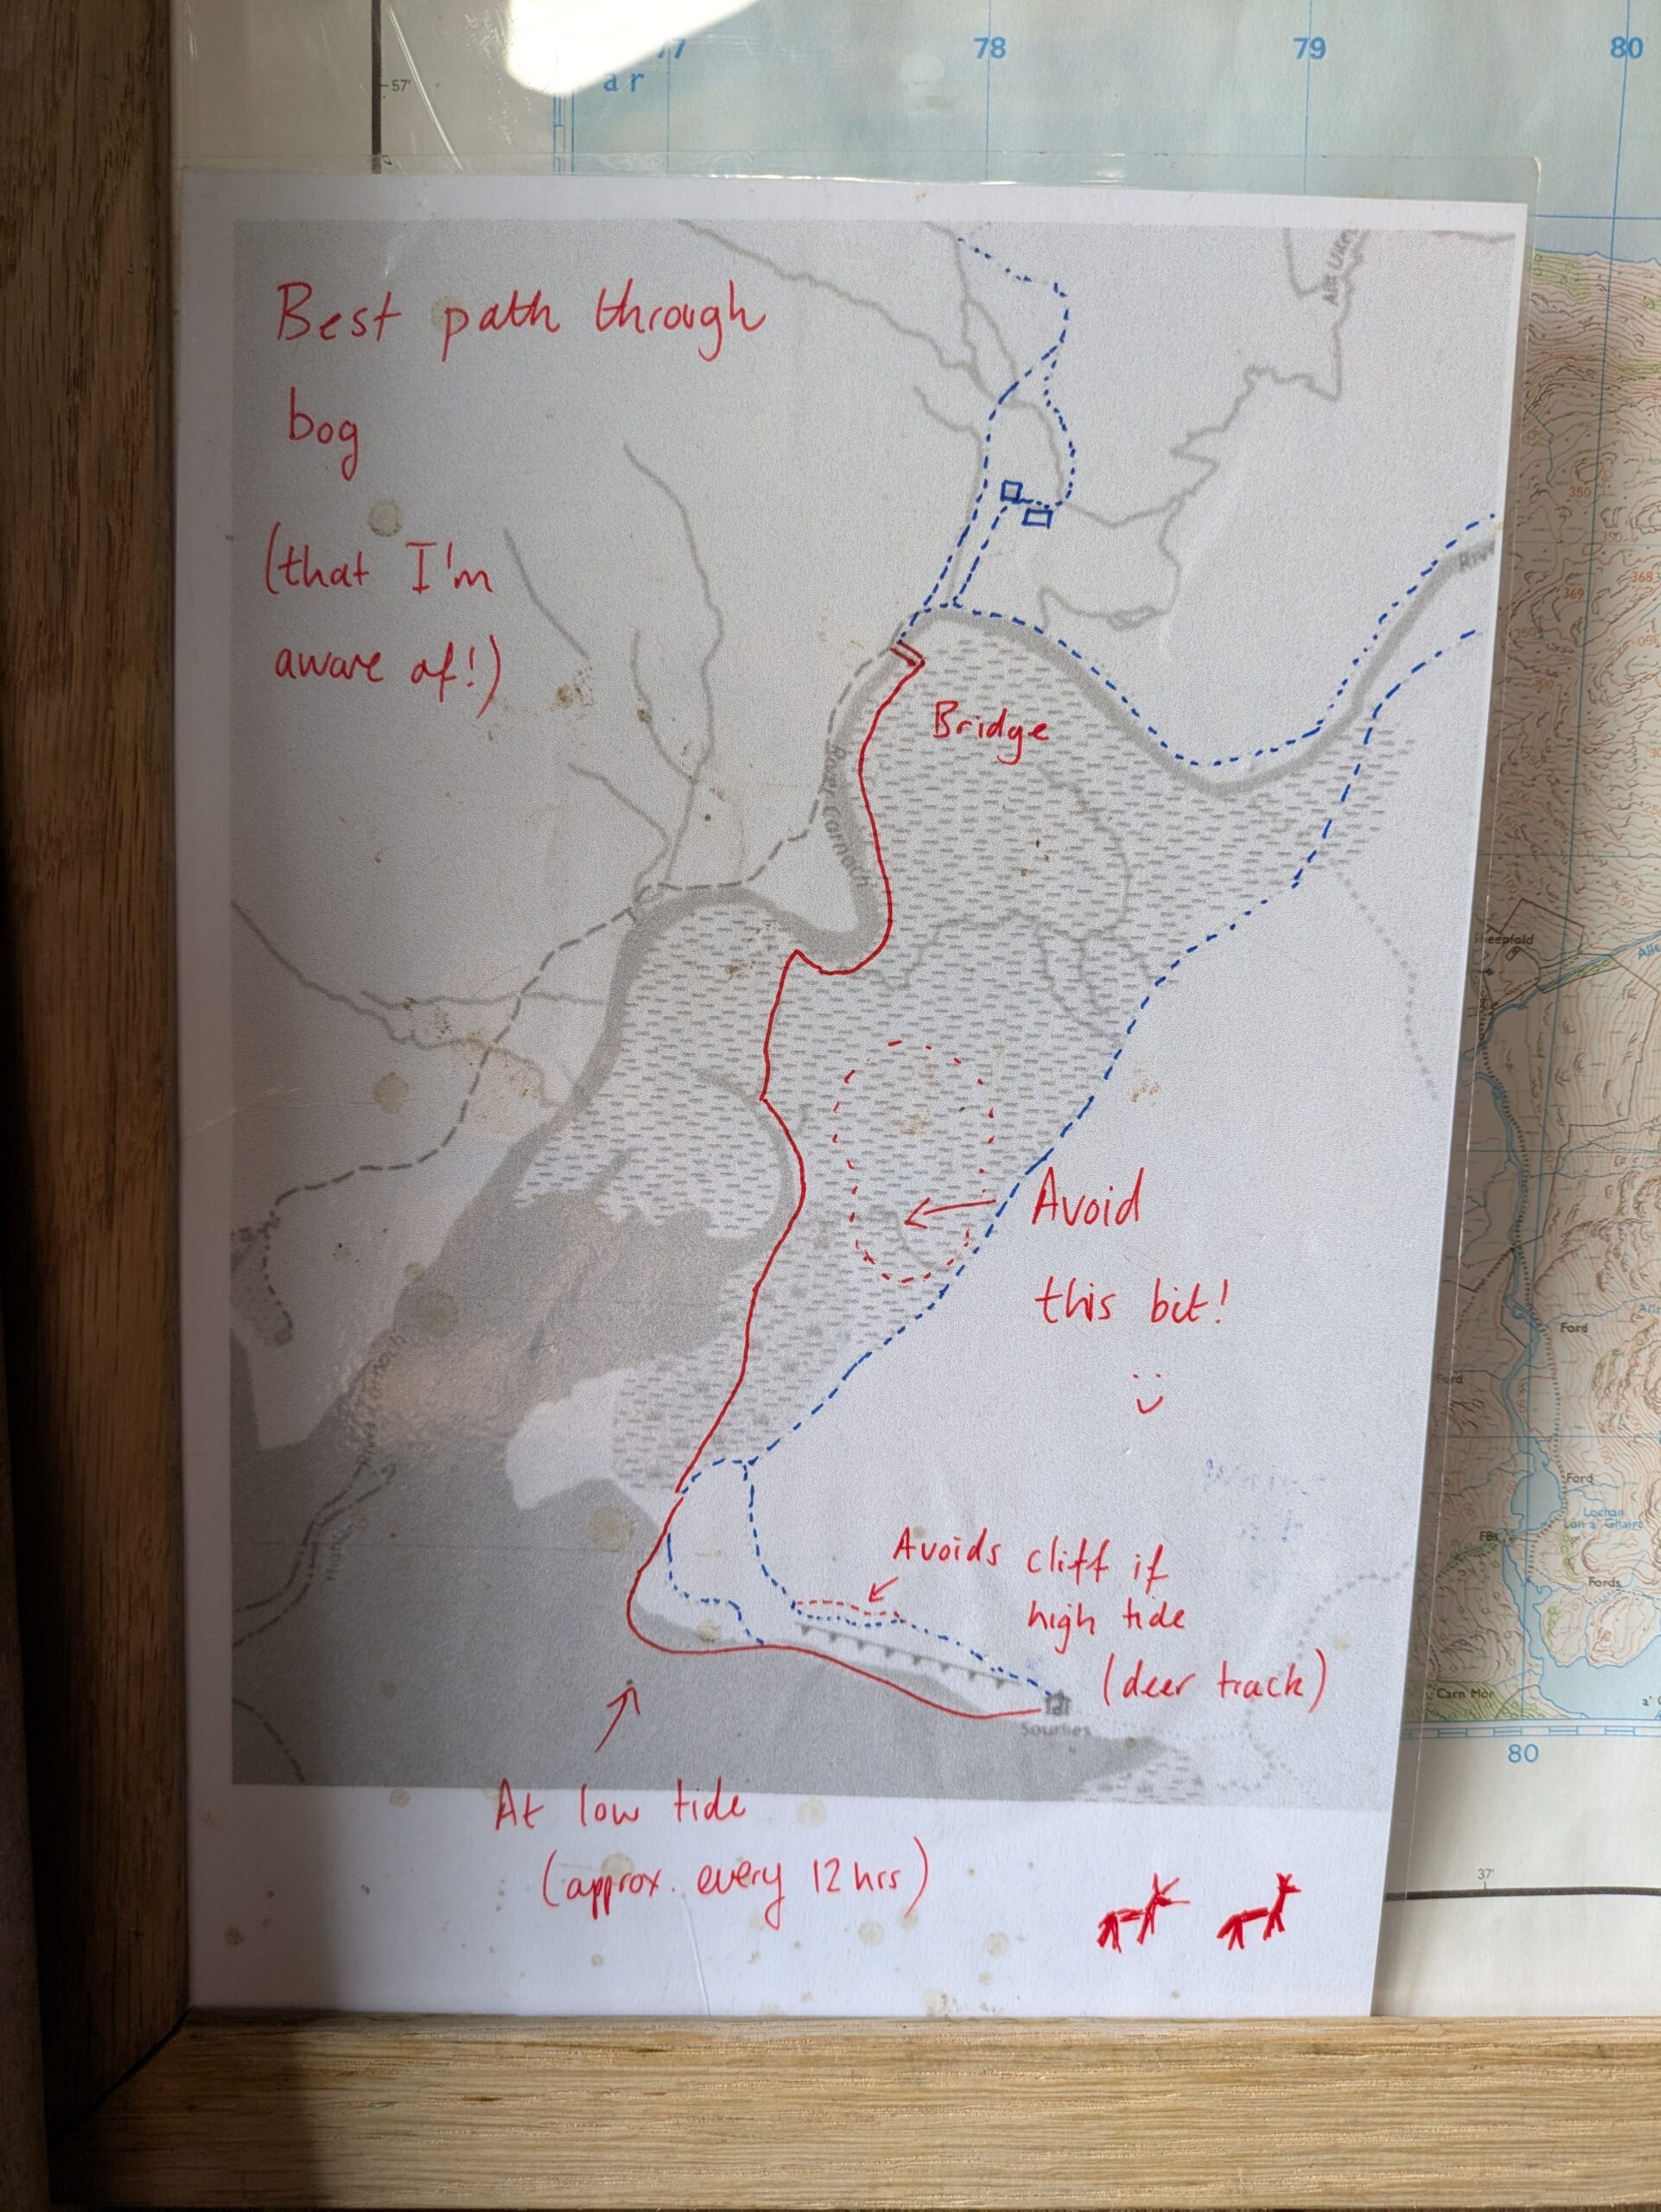 77
78
79
80
a r
57'
Allt Uiler
Best path through
bog
(that I'm
aware of!)
Bridge
River Carnach
Avoid
this bit!
Avoids cliff if
high tide
(deer track)
Sourlies
At low tide
(approx. every 12 hrs)
350
368
369
350
150
Sheepfold
Ford
Ford
Lochan
Lon a' Ghairt
FBs
Fords
Carn Mor
80
37'